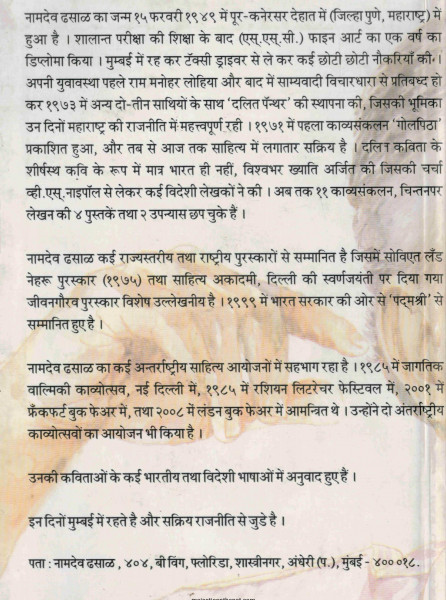 नामदेव ढसाळ का जन्म १५ फरवरी १९४९ में पूर-कनेरसर देहात में (जिल्हा पुणे, महाराष्ट्र) में
हुआ है । शालान्त परीक्षा की शिक्षा के बाद (एस्.एस्.सी.) फाइन आर्ट का एक वर्ष का
डिप्लोमा किया । मुम्बई में रह कर टॅक्सी ड्राइवर से ले कर कई छोटी छोटी नौकरियाँ की ।
अपनी युवावस्था पहले राम मनोहर लोहिया और बाद में साम्यवादी विचारधारा से प्रतिबध्द हो
कर १९७३ में अन्य दो-तीन साथियों के साथ 'दलित पॅन्थर' की स्थापना की, जिसकी भूमिका
उन दिनों महाराष्ट्र की राजनीति में महत्त्वपूर्ण रही । १९७१ में पहला काव्यसंकलन 'गोलपिठा'
प्रकाशित हुआ, और तब से आज तक साहित्य में लगातार सक्रिय है । दलित कविता के
शीर्षस्थ कवि के रूप में मात्र भारत ही नहीं, विश्वभर ख्याति अर्जित की जिसकी चर्चा
व्ही.एस्.नाइपॉल से लेकर कई विदेशी लेखकों ने की । अब तक ११ काव्यसंकलन, चिन्तनपर
लेखन की ४ पुस्तकें तथा २ उपन्यास छप चुके हैं ।
नामदेव ढसाळ कई राज्यस्तरीय तथा राष्ट्रीय पुरस्कारों से सम्मानित है जिसमें सोविएत लॅंड
नेहरू पुरस्कार (१९७५) तथा साहित्य अकादमी, दिल्ली की स्वर्णजयंती पर दिया गया
जीवनगौरव पुरस्कार विशेष उल्लेखनीय है । १९९९ में भारत सरकार की ओर से 'पद्मश्री' से
सम्मानित हुए है ।
नामदेव ढसाळ का कई अन्तर्राष्ट्रीय साहित्य आयोजनों में सहभाग रहा है । १९८५ में जागतिक
वाल्मिकी काव्योत्सव, नई दिल्ली में, १९८५ में रशियन लिटरेचर फेस्टिवल में, २००१ में
फ्रॅंकफर्ट बुक फेअर में, तथा २००८ में लंडन बुक फेअर में आमन्त्रित थे । उन्होंने दो अंतर्राष्ट्रीय
काव्योत्सवों का आयोजन भी किया है ।
उनकी कविताओं के कई भारतीय तथा विदेशी भाषाओं में अनुवाद हुए हैं ।
इन दिनों मुम्बई में रहते है और सक्रिय राजनीति से जुडे है ।
पता : नामदेव ढसाळ , ४०४, बी विंग, फ्लोरिडा, शास्त्रीनगर, अंधेरी (प.), मुंबई - ४०० ०१८.